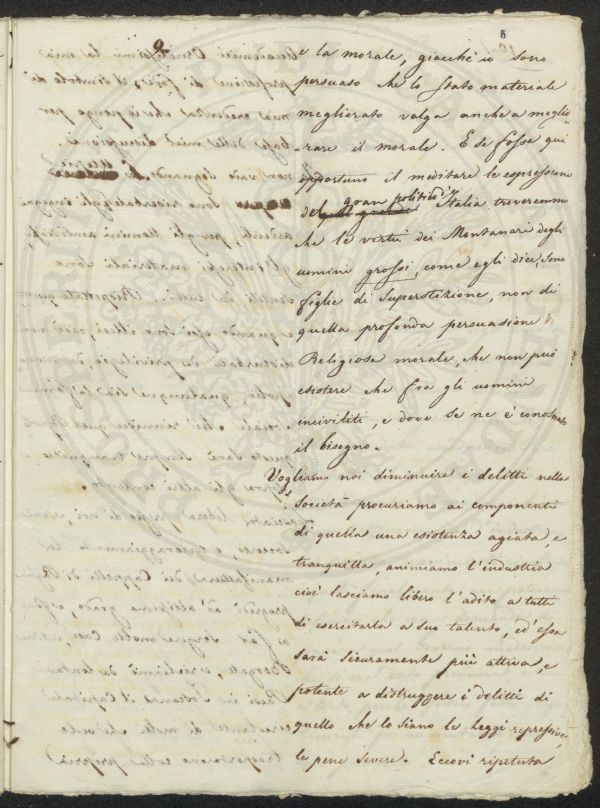 5
e la morale, giacchè io sono
persuaso che lo stato materiale
megliorato valga anche a meglio
rare il morale. E se fosse qui
opportuno il meditare le espressione
del gran politico d'Italia troveremmo
che le virtù dei Montanari degli
uomini grossi, come egli dice, sono
figlie di Superstizione, non di
quella profonda persuasione
Religiosa morale, che non può
esistere che fra gli uomini
inciviliti, e dove se ne è conosciuto
il bisogno.
Vogliamo noi diminuire i delitti nella
società procuriamo ai componenti
di quella una esistenza agiata, e
tranquilla, animiamo l'industria
cioè lasciamo libero l'adito a tutti
di esercitarla a suo talento, ed essa
sarà sicuramente più attiva, e
potente a distruggere i delitti di
quello che lo siano le Leggi repressive,
le pene severe. Eccovi ripetuta